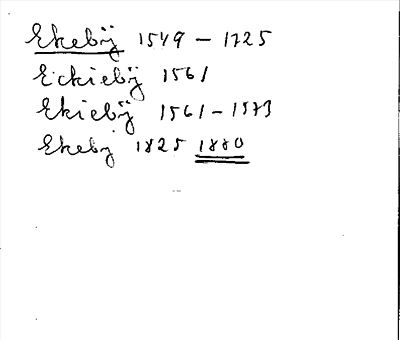 Ekebÿ 1549 – 1725
Eckiebÿ 1561
Ekiebÿ 1561 – 1573
Ekeby 1825 1880